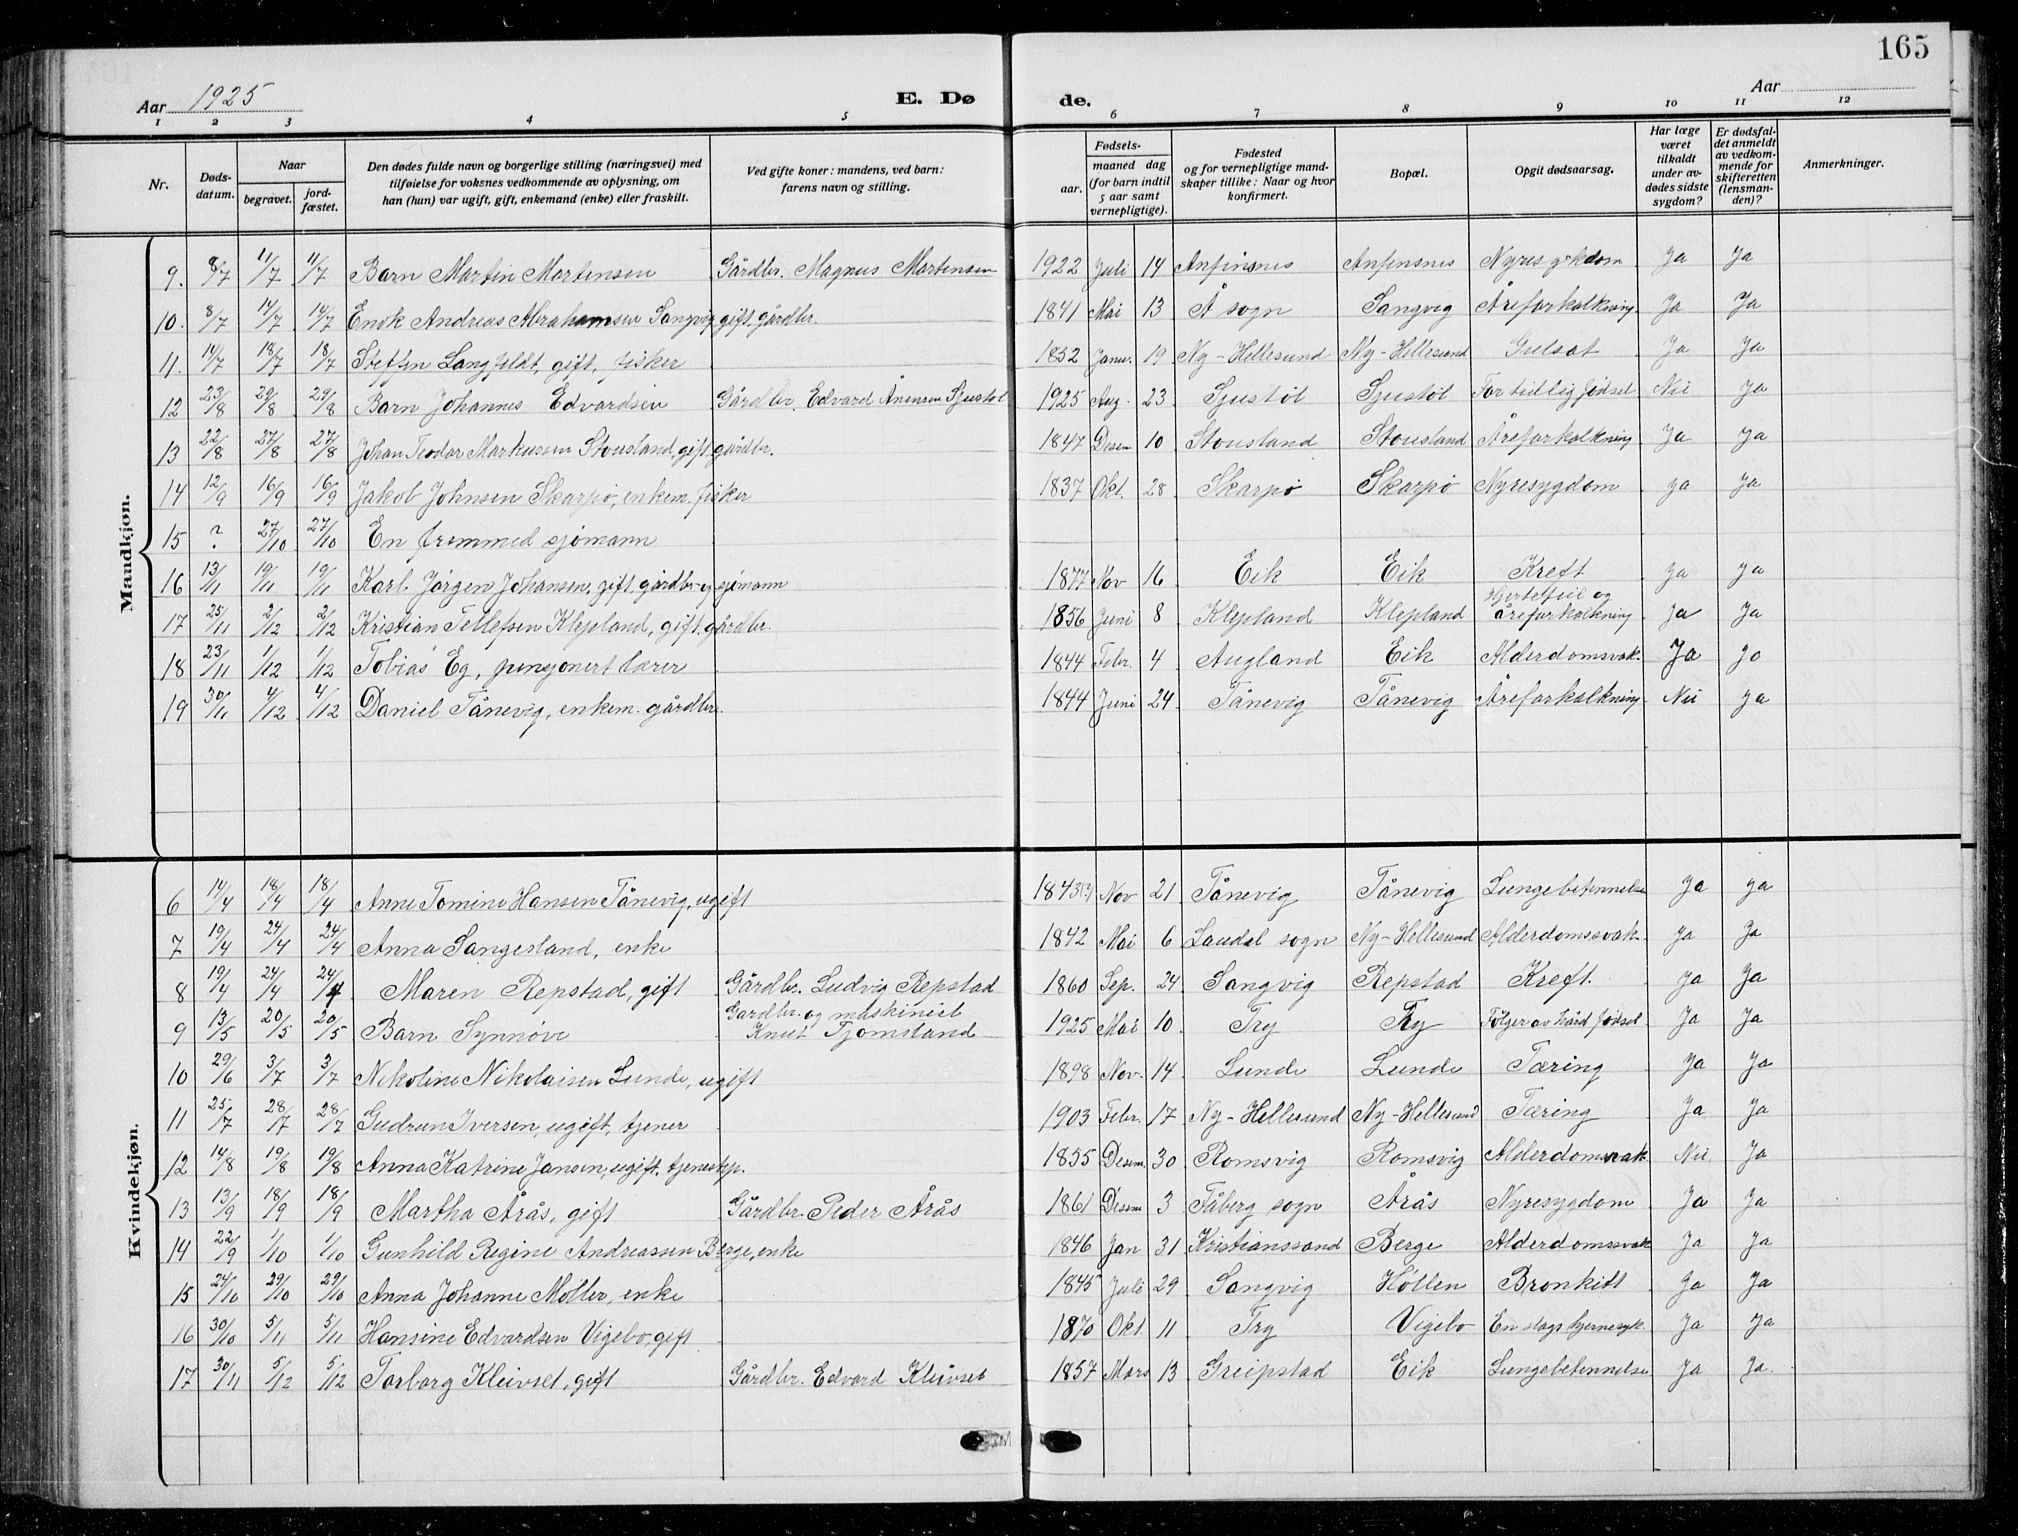 165
Aar 1925 E. Dø de. Aar
1 2 3 4 5 6 7 8 9 10 11 12
Nr. Døds-datum. Naar begravet. jord-fæstet. Den dødes fulde navn og borgerlige stilling (næringsvei) med tilføielse for voksnes vedkommende av oplysning, om han (hun) var ugift, gift, enkemand (enke) eller fraskilt. Ved gifte koner: mandens, ved barn: farens navn og stilling. Fødsels- aar. maaned dag (for barn indtil 5 aar samt vernepligtige). Fødested og for vernepligtige mandskaper tillike: Naar og hvor konfirmert. Bopæl. Opgit dødsaarsag. Har læge været tilkaldt under avdødes sidste sygdom? Er dødsfaldet anmeldt av vedkommende for skifteretten (lensmanden)? Anmerkninger.
Mandkjøn.
9. 8/7 11/7 11/7 Barn Martin Martensen Gårdbr. Magnus Martensen 1922 Juli 14 Anfinsnes Anfinsnes Nyresykdom Ja Ja
10. 8/7 14/7 14/7 Enok Andreas Abrahamsen Sangvig gift gårdbr. 1841 Mai 13 Å sogn Sangvig Åreforkalkning Ja Ja
11. 14/7 18/7 18/7 Steffen Langfeldt, gift, fisker 1852 Janu. 19 Ny-Hellesund Ny-Hellesund Gulsot Ja Ja
12 23/8 29/8 29/8 Barn Johannes Edvardsen Gårdbr. Edvard Ånensen Sjustøl 1925 Aug. 23 Sjustøl Sjustøl For tidlig fødsel Nei Ja
13 22/8 27/8 27/8 Johan Teodor Markussen Stousland, gift gårdbr. 1847 Desem 10 Stousland Stousland Åreforkalkning Ja Ja
14 12/9 16/9 16/9 Jakob Johnsen Skarpø, enkem. fisker 1837 Okt. 28 Skarpø Skarpø Nyresygdom Ja Ja
15 ? 27/10 27/10 En fremmed sjømann
16 13/11 19/11 19/11 Karl Jørgen Johansen, gift gårdbr. og sjømann 1877 Nov 16 Eik Eik Kreft Ja Ja
17 25/11 2/12 2/12 Kristian Tellefsen Klepland, gift, gårdbr. 1856 Juni 8 Klepland Klepland Hjertefeil og åreforkalkning Ja Ja
18 23/11 1/12 1/12 Tobias Eg, pensjonert lærer 1844 Febr. 4 Augland Eik Alderdomsvak. Ja Ja
19 30/11 4/12 4/12 Daniel Tånevig, enkem. gårdbr. 1844 Juni 24 Tånevig Tånevig Åreforkalkning Nei Ja
Kvindekjøn.
6 14/4 18/4 18/4 Anne Tomine Hansen Tånevig, ugift 1843(?) Nov 21 Tånevig Tånevig Lungebetennelse Ja Ja
7 19/4 24/4 24/4 Anna Sangesland, enke 1842 Mai 6 Laudal sogn Ny-Hellesund Alderdomssvak. Ja Ja
8 19/4 24/4 24/4 Maren Repstad, gift Gårdbr. Ludvig Repstad 1860 Sep. 24 Sangvig Repstad Kreft. Ja Ja
9 13/5 20/5 20/5 Barn Synnøve Gårdbr. og maskinist Knut Tjomsland 1925 Mai 10 Try Try Følger av hård fødsel Ja Ja
10 29/6 3/7 3/7 Nikoline Nikolaisen Lunde, ugift 1898 Nov. 14 Lunde Lunde Tæring Ja Ja
11 25/7 28/7 28/7 Gudrun Iversen, ugift, tjener 1903 Febr. 17 Ny-Hellesund Ny-Hellesund Tæring Ja Ja
12 14/8 19/8 19/8 Anna Katrine Jansen, ugift, tjenestep. 1855 Desem 30 Romsvig Romsvig Alderdomsvak. Nei Ja
13 13/9 18/9 18/9 Martha Årås, gift Gårdbr. Peder Årås 1861 Desem 3 Fåberg sogn Årås Nyresygdom Ja Ja
14 22/9 1/10 1/10 Gunhild Regine Andreassen Berge, enke 1846 Jan 31 Kristianssand Berge Alderdomssvak Ja Ja
15 24/10 29/10 29/10 Anna Johanne Møller, enke 1845 Juli 29 Sangvig Høllen Bronkitt Ja Ja
16 30/10 5/11 5/11 Hansine Edvardsen Vigebo, gift 1870 Okt. 11 Try Vigebo En slags hjernesyk. Ja Ja
17 30/11 5/12 5/12 Torborg Kleivset, gift Gårdbr. Edvard Kleivset 1857 Mars 13 Greipstad Eik Lungebetennelse Ja Ja.